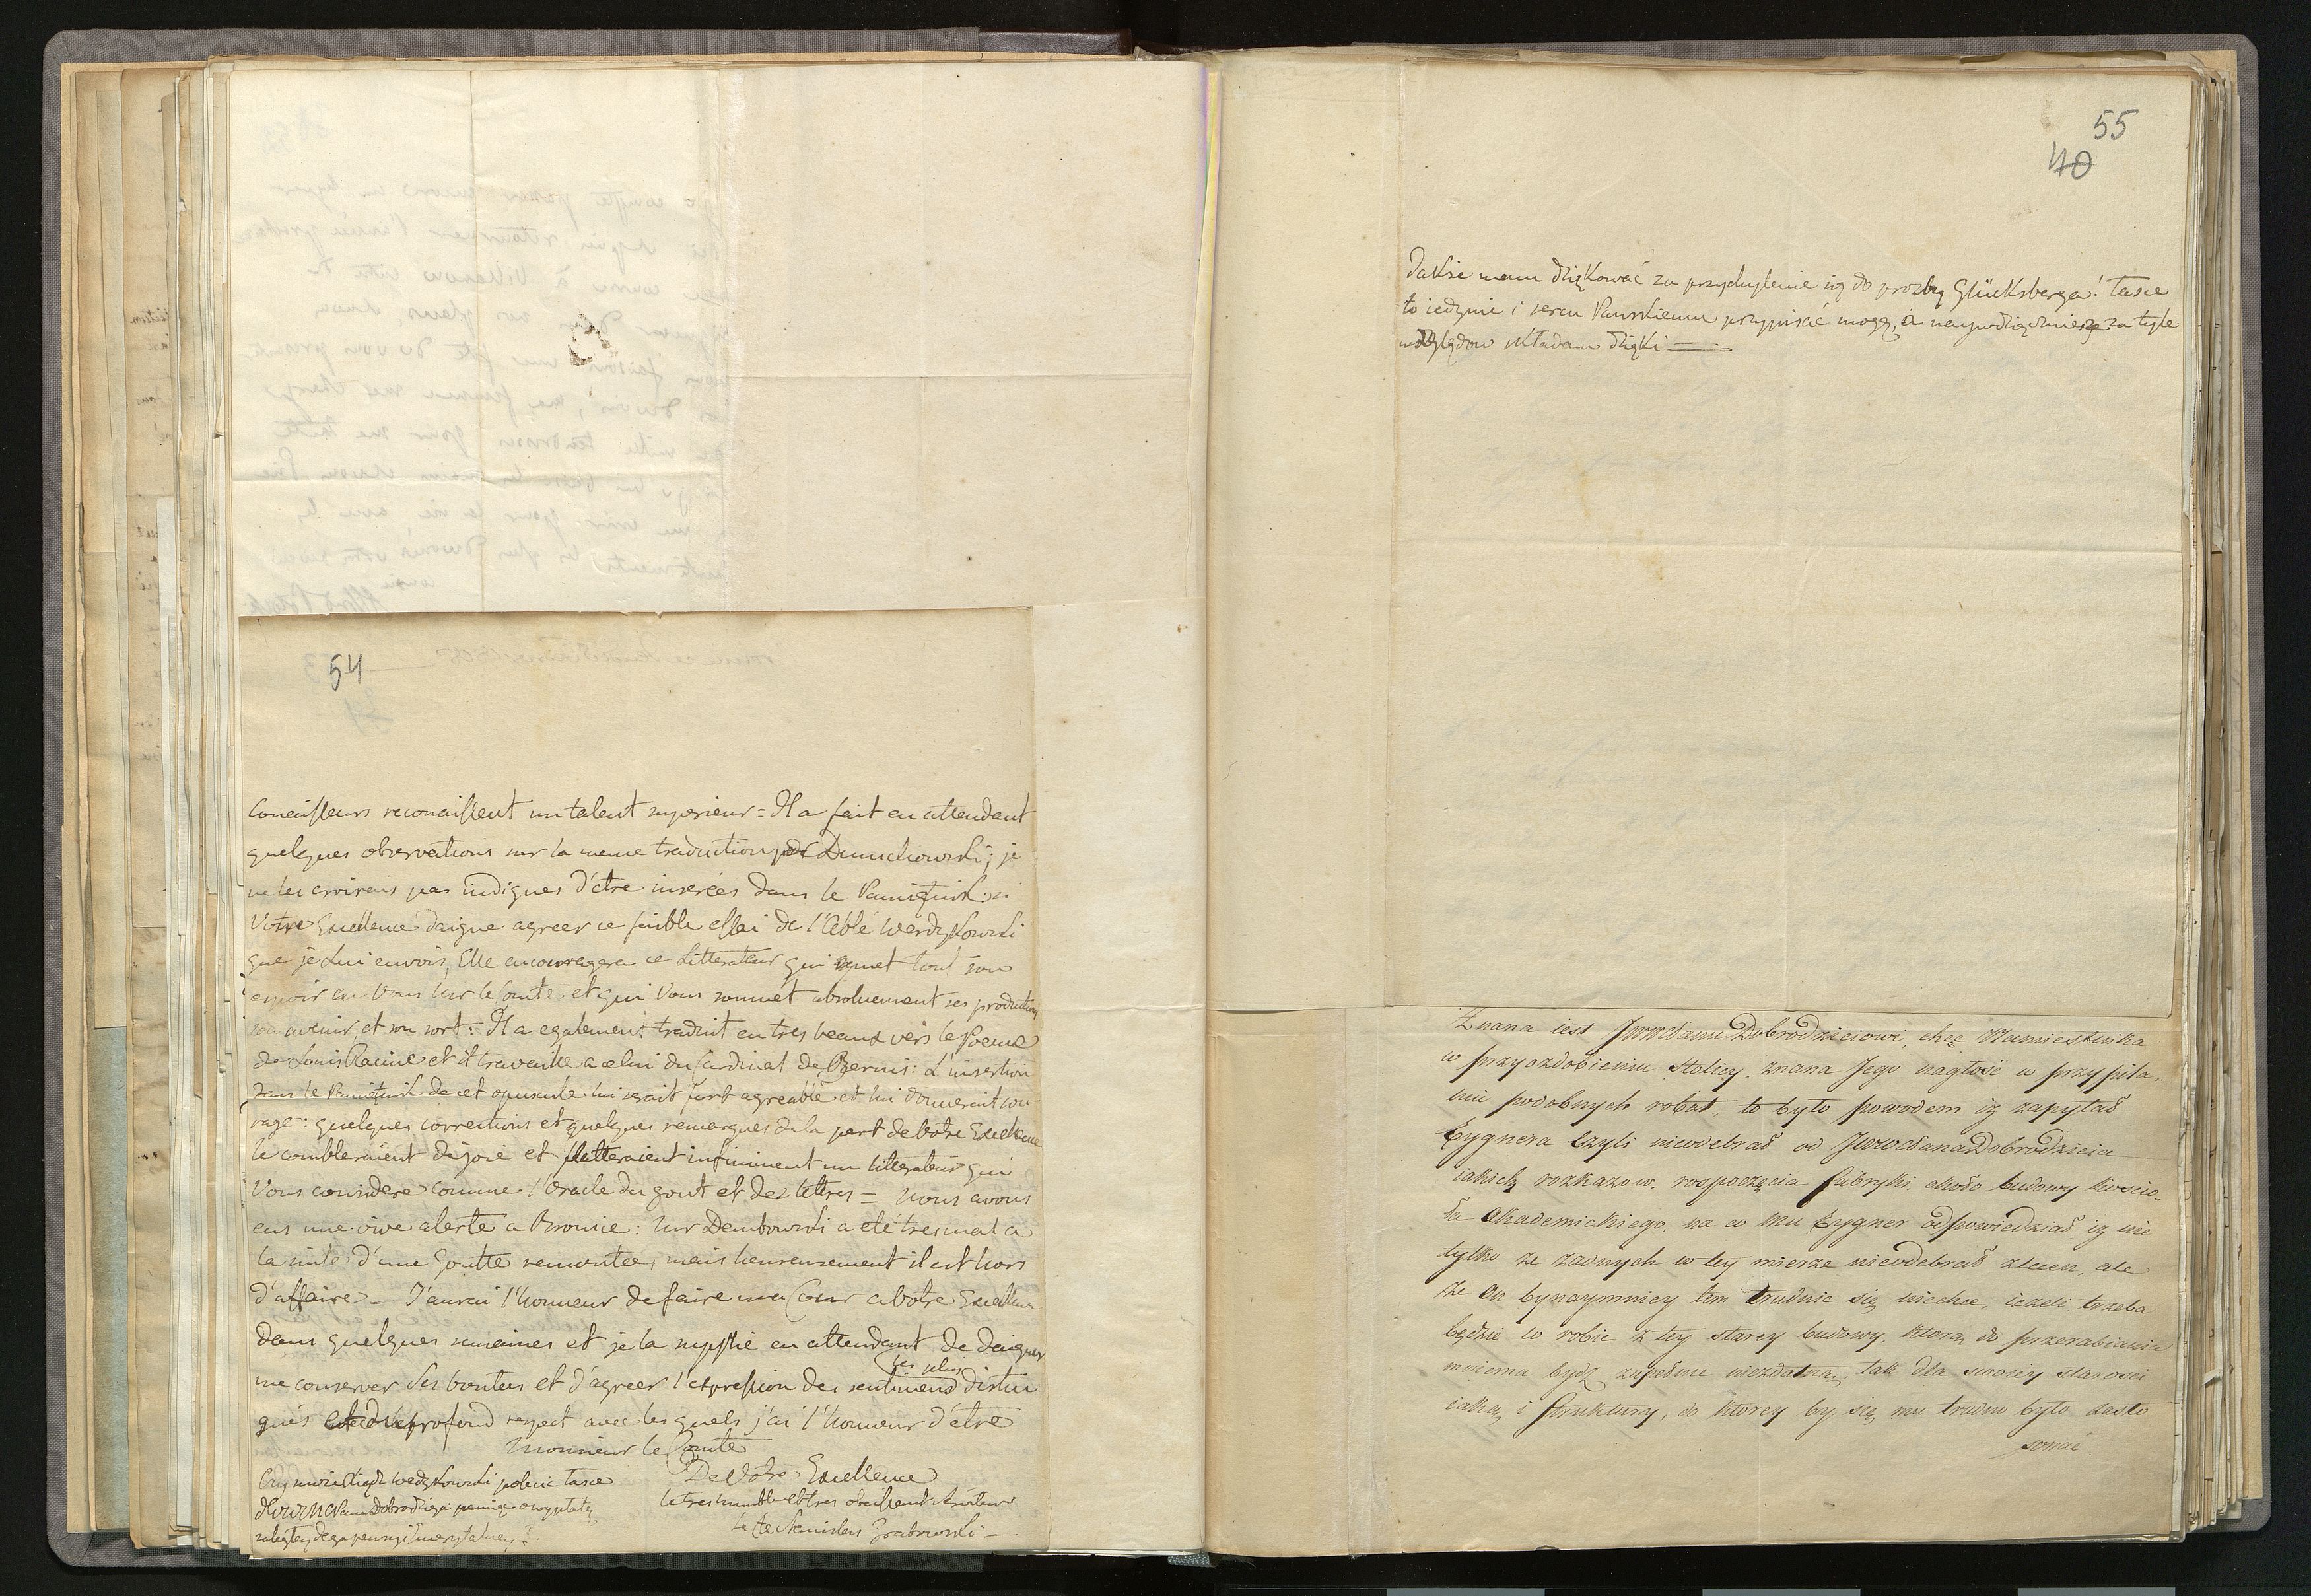 54
Conaisseurs reconaissent un talent superieur = Il a fait en attendant
quelques observations sur la meme traduction par Dmuchowski; je
ne les croirais pas indignes d'être inserées dans le Pamiętnik: si
Votre Excellence daigne agreer ce faible essai de l'Abbé
que je Lui envois, Elle encouragera ce Litterateur qui met tout son
espoir en Vous Mr le Comte et qui Vous soumet absoluement ses productions
son avenir et son sort: Il a egalement traduit en tres beaux vers le Poeme
de Louis Racine et il travaille a celui du Cardinal de Bernis: L'insertion
dans le Pamiętnik de cet opuscule lui serait fort agreable et lui donnerait cou-
rage: quelques corrections et quelques remarques de la part de Votre Excellence
le combleraient de joie et flatteraient infiniment un litterateur qui
Vous considere comme l'Oracle du gout et des lettres = Nous avons
eus une vive alerte a Bronice: Mr Dembowski a eté tres mal a
la suite d'une Goutte remontée, mais heureusement il est hors
d'affaire — J'aurai l'honneur de faire ma Cour a Votre Excellence
dans quelques semaines et je la supplie en attendant de daigner
me conserver Ses bontées et d'agreer l'expression des sentimens les plus distin
gués et du profond respect avec lesquels j'ai l'honneur d'être
Monsieur le Comte
De Votre Excellence
le tres humble et tres obeissant Serviteur
le Cte Stanislas Grabowski —
Czy może Xiądz polecić łasce
JWWMPana Dobrodzieja pamięć o wypłatę
zaległey Jego pensyi Emerytalney?
55
40
Jakże mam dziękować za przychylenie się do prozby Glücksberga! łasce
to iedynie i sercu Pańskiemu przypisać mogę, a naywdzięcznieysze za tyle
względow składam dzięki
Znana iest JWWPanu Dobrodzieiowi, chęć Namiestnika
w przyozdobieniu Stolicy, znana Jego nagłość w przypila-
niu podobnych robot, to było powodem iż zapytał
Eygnera czyli nieodebrał od JWWPana Dobrodzieia
iakich rozkazow, rospoczęcia fabryki około budowy kościo-
ła akademickiego, na co mu Eygner odpowiedział iż nie
tylko że żadnych w tey mierze nieodebrał zleceń, ale
że on bynaymniey tem trudnić się niechce, ieżeli trzeba
będzie to robić z tey starey budowy, ktorą do przerabiania
mniema bydź zupełnie niezdatną, tak dla swoiey starości
iako i struktury, do ktorey by się mu trudno było zasto
sować.